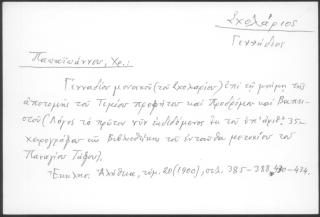 Σχολάριος
Γεννάδιος
Παπαϊωάννου, Χρ.:
Γενναδίου μοναχοῦ (τοῦ Σχολαρίου) ἐπὶ τῇ μνήμῃ τῆς
ἀποτομῆς τοῦ Τιμίου προφήτου καὶ Προδρόμου καὶ Βαπτι-
στοῦ (Λόγος τὸ πρῶτον νῦν ἐκδιδόμενος ἐκ τοῦ ὑπ' ἀριθ. 35
χειρογράφου τῆς Βιβλιοθήκης τοῦ ἐνταῦθα μετοχίου τοῦ
Παναγίου Τάφου).
Ἐκκλησ. Ἀλήθεια, τόμ. 20 (1900), σελ. 385-388, 430-434.